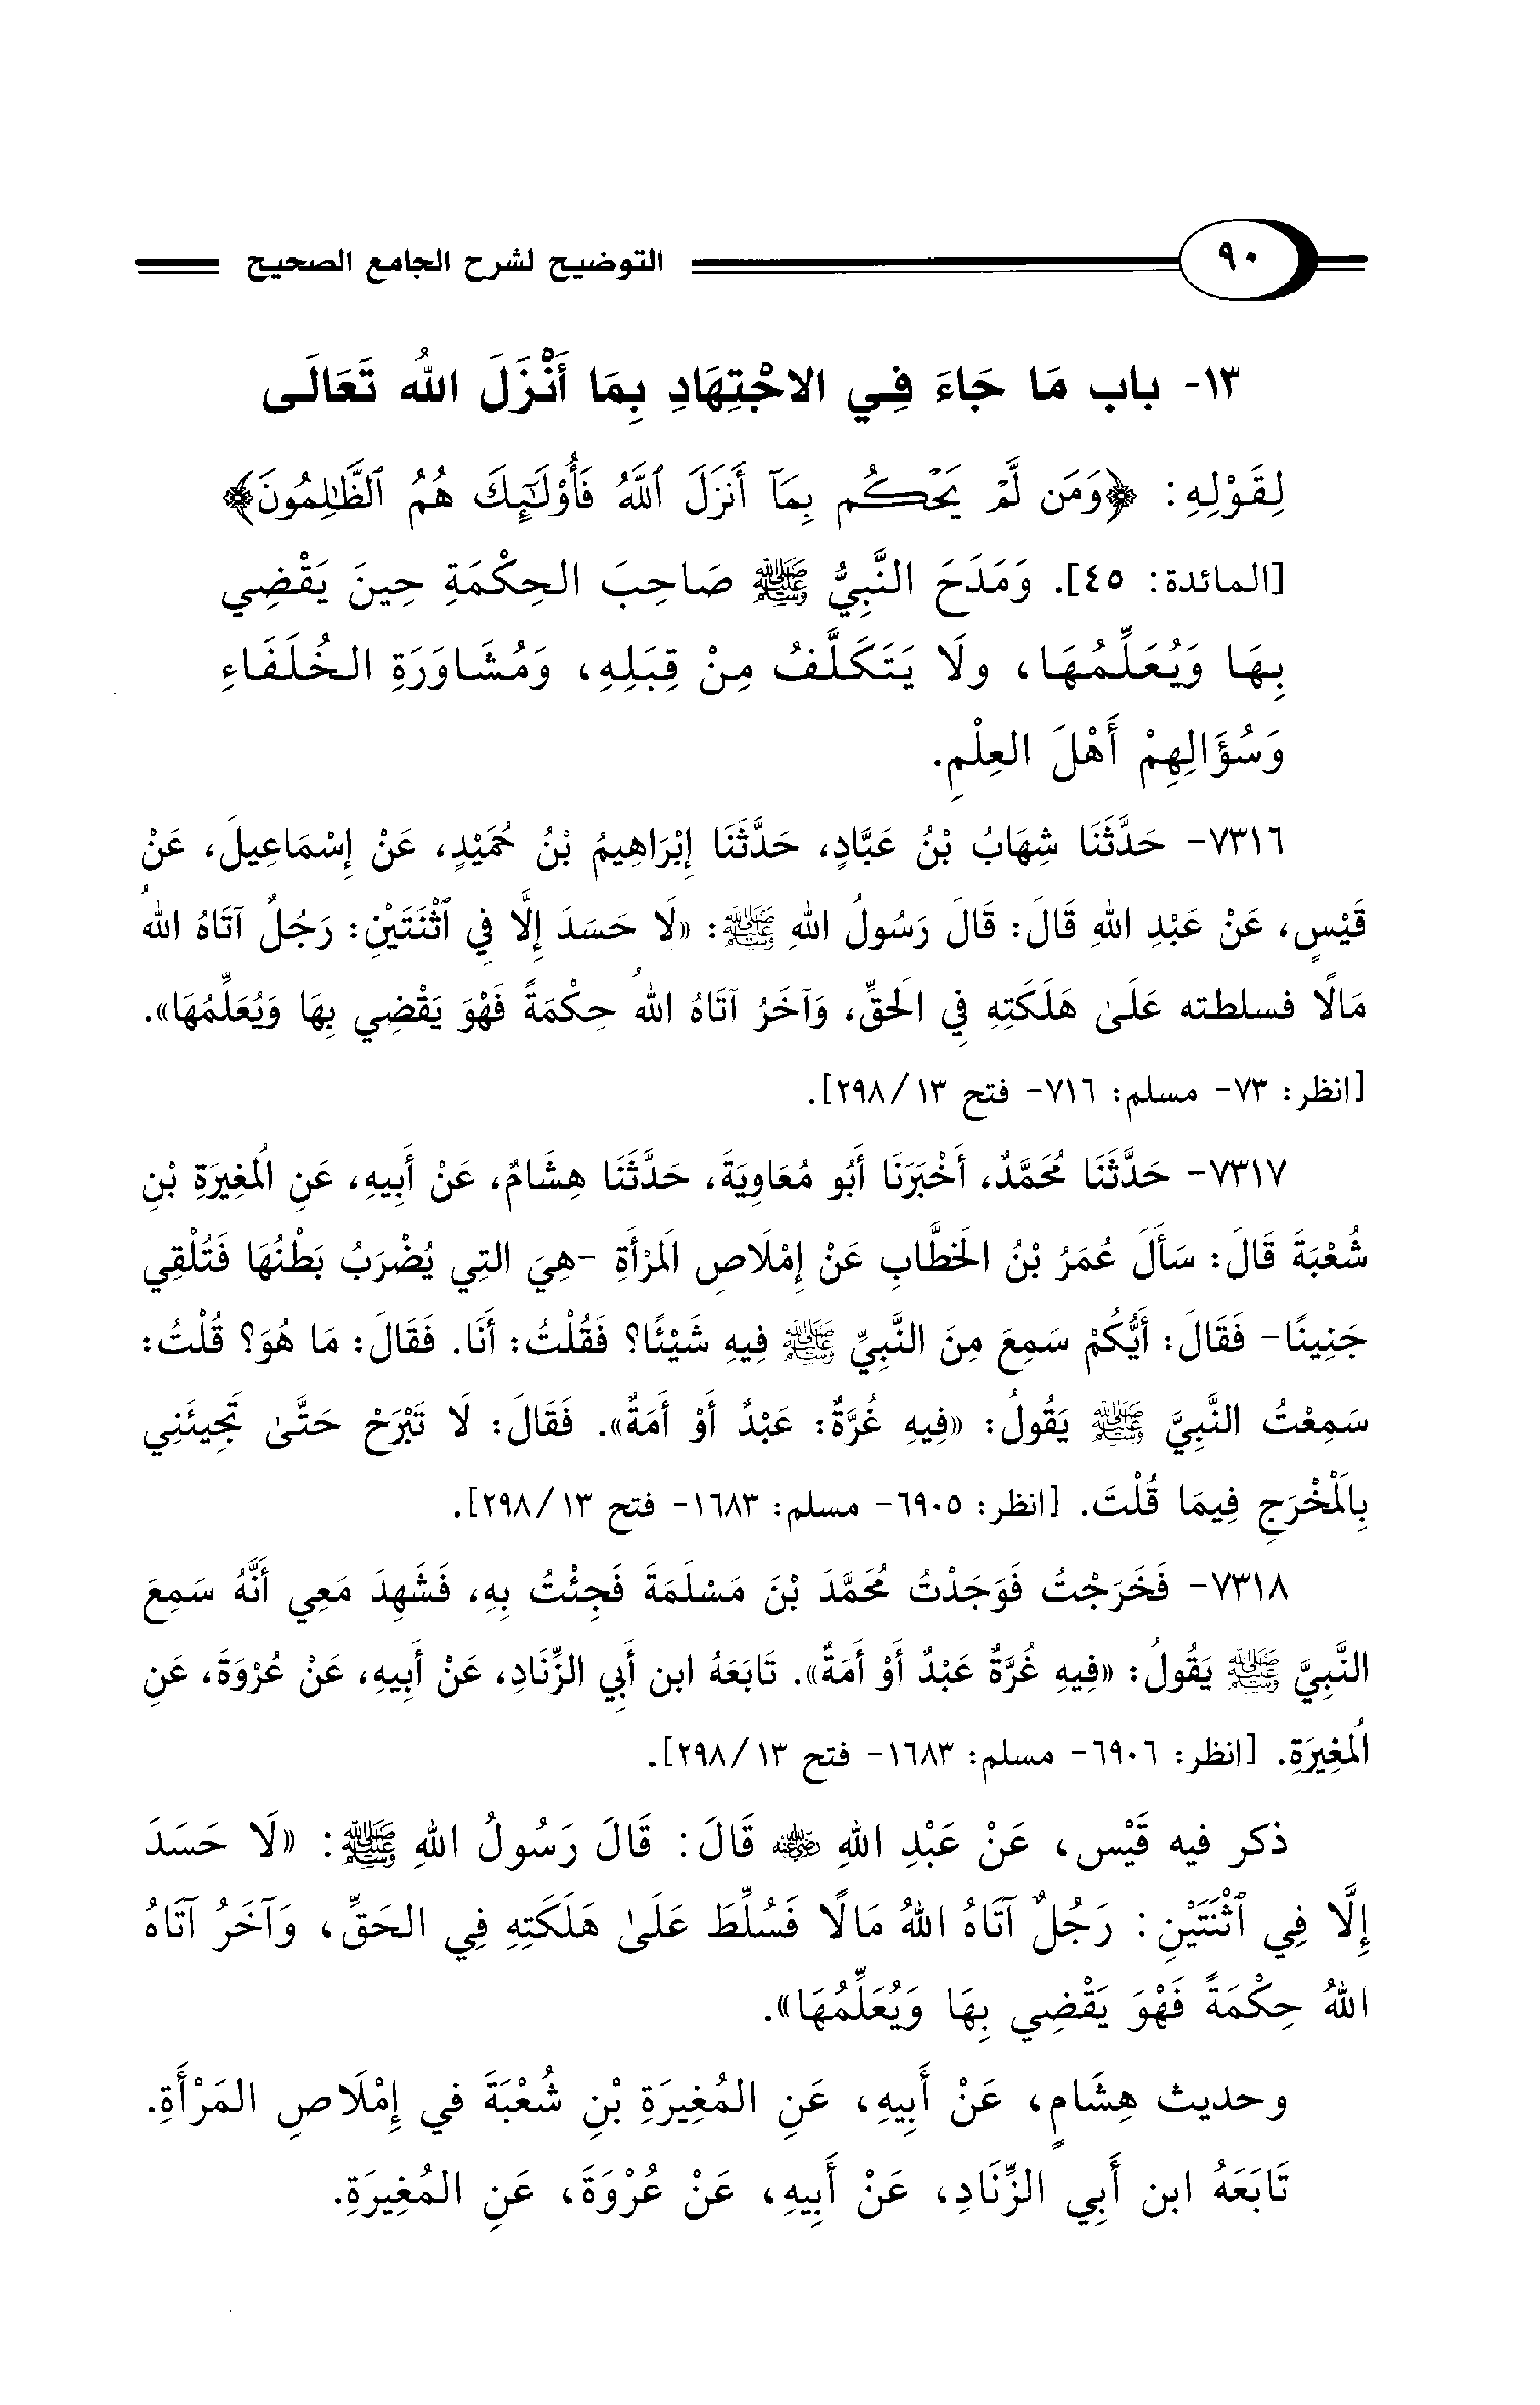 ٩٠
التوضيح لشرح الجامع الصحيح
١٣- باب مَا جَاءَ فِي الاجْتِهَادِ بِمَا أَنْزَلَ اللهُ تَعَالَى
لِقَوْلِهِ: ﴿وَمَن لَّمْ يَحْكُم بِمَآ أَنزَلَ ٱللَّهُ فَأُوْلَٰٓئِكَ هُمُ ٱلظَّٰلِمُونَ﴾
[المائدة: ٤٥]. وَمَدَحَ النَّبِيُّ ﷺ صَاحِبَ الحِكْمَةِ حِينَ يَقْضِي
بِهَا وَيُعَلِّمُهَا، ولَا يَتَكَلَّفُ مِنْ قِبَلِهِ، وَمُشَاوَرَةِ الخُلَفَاءِ
وَسُؤَالِهِمْ أَهْلَ العِلْمِ.
٧٣١٦- حَدَّثَنَا شِهَابُ بْنُ عَبَّادٍ، حَدَّثَنَا إِبْرَاهِيمُ بْنُ حُمَيْدٍ، عَنْ إِسْمَاعِيلَ، عَنْ
قَيْسٍ، عَنْ عَبْدِ اللهِ قَالَ: قَالَ رَسُولُ اللهِ ﷺ: «لَا حَسَدَ إِلَّا فِي ٱثْنَتَيْنِ: رَجُلٌ آتَاهُ اللهُ
مَالًا فسلطته عَلَىٰ هَلَكَتِهِ فِي الَحقِّ، وَآخَرُ آتَاهُ اللهُ حِكْمَةً فَهْوَ يَقْضِي بِهَا وَيُعَلِّمُهَا».
[انظر: ٧٣- مسلم: ٧١٦- فتح ١٣/ ٢٩٨].
٧٣١٧- حَدَّثَنَا مُحَمَّدٌ، أَخْبَرَنَا أَبُو مُعَاوِيَةَ، حَدَّثَنَا هِشَامٌ، عَنْ أَبِيهِ، عَنِ الُمغِيرَةِ بْنِ
شُعْبَةَ قَالَ: سَأَلَ عُمَرُ بْنُ الَخطَّابِ عَنْ إِمْلَاصِ الَمرْأَةِ -هِيَ التِي يُضْرَبُ بَطْنُهَا فَتُلْقِي
جَنِينًا- فَقَالَ: أَيُّكُمْ سَمِعَ مِنَ النَّبِيِّ ﷺ فِيهِ شَيْئًا؟ فَقُلْتُ: أَنَا. فَقَالَ: مَا هُوَ؟ قُلْتُ:
سَمِعْتُ النَّبِيَّ ﷺ يَقُولُ: «فِيهِ غُرَّةٌ: عَبْدٌ أَوْ أَمَةٌ». فَقَالَ: لَا تَبْرَحْ حَتَّىٰ تَجِيئَنِي
بِالَمْخْرَجِ فِيمَا قُلْتَ. [انظر: ٦٩٠٥- مسلم: ١٦٨٣- فتح ١٣/ ٢٩٨].
٧٣١٨- فَخَرَجْتُ فَوَجَدْتُ مُحَمَّدَ بْنَ مَسْلَمَةَ فَجِئْتُ بِهِ، فَشَهِدَ مَعِي أَنَّهُ سَمِعَ
النَّبِيَّ ﷺ يَقُولُ: «فِيهِ غُرَّةٌ عَبْدٌ أَوْ أَمَةٌ». تَابَعَهُ ابن أَبِي الزِّنَادِ، عَنْ أَبِيهِ، عَنْ عُرْوَةَ، عَنِ
الُمغِيرَةِ. [انظر: ٦٩٠٦- مسلم: ١٦٨٣- فتح ١٣/ ٢٩٨].
ذكر فيه قَيْس، عَنْ عَبْدِ اللهِ رضي الله عنه قَالَ: قَالَ رَسُولُ اللهِ ﷺ: «لَا حَسَدَ
إِلَّا فِي ٱثْنَتَيْنِ: رَجُلٌ آتَاهُ اللهُ مَالًا فَسُلِّطَ عَلَىٰ هَلَكَتِهِ فِي الحَقِّ، وَآخَرُ آتَاهُ
اللهُ حِكْمَةً فَهْوَ يَقْضِي بِهَا وَيُعَلِّمُهَا».
وحديث هِشَامٍ، عَنْ أَبِيهِ، عَنِ المُغِيرَةِ بْنِ شُعْبَةَ في إِمْلَاصِ المَرْأَةِ.
تَابَعَهُ ابن أَبِي الزِّنَادِ، عَنْ أَبِيهِ، عَنْ عُرْوَةَ، عَنِ المُغِيرَةِ.